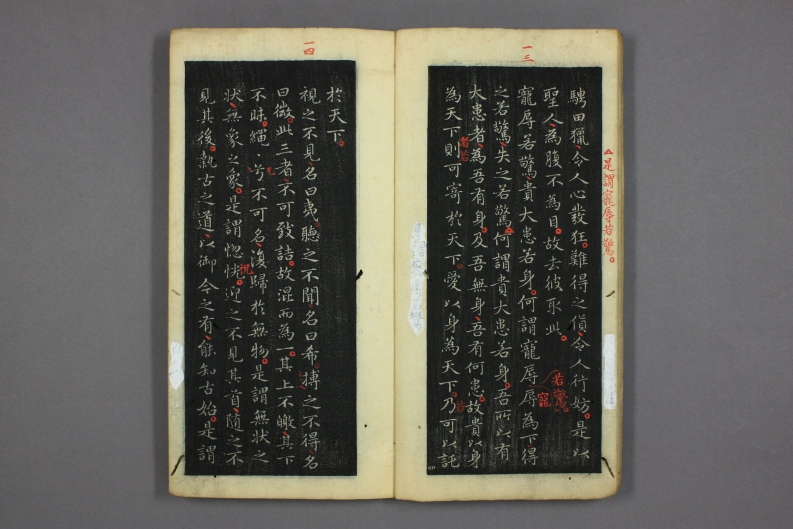 一三
騁田獵令人心發狂難得之貨令人行妨是以
聖人為腹不為目故去彼取此
寵辱若驚貴大患若身何謂寵辱辱為下得
之若驚失之若驚何謂貴大患若身吾所以有
大患者為吾有身及吾無身吾有何患故貴以身
為天下則可寄於天下愛以身為天下乃可以託
是謂寵辱若驚
若驚
寵
若
一四
於天下
視之不見名曰夷聽之不聞名曰希搏之不得名
曰微此三者不可致詰故混而為一其上不皦其下
不昧繩〻兮不可名復歸於無物是謂無狀之
狀無象之象是謂惚恍迎之不見其首隨之不
見其後執古之道以御今之有能知古始是謂
怳